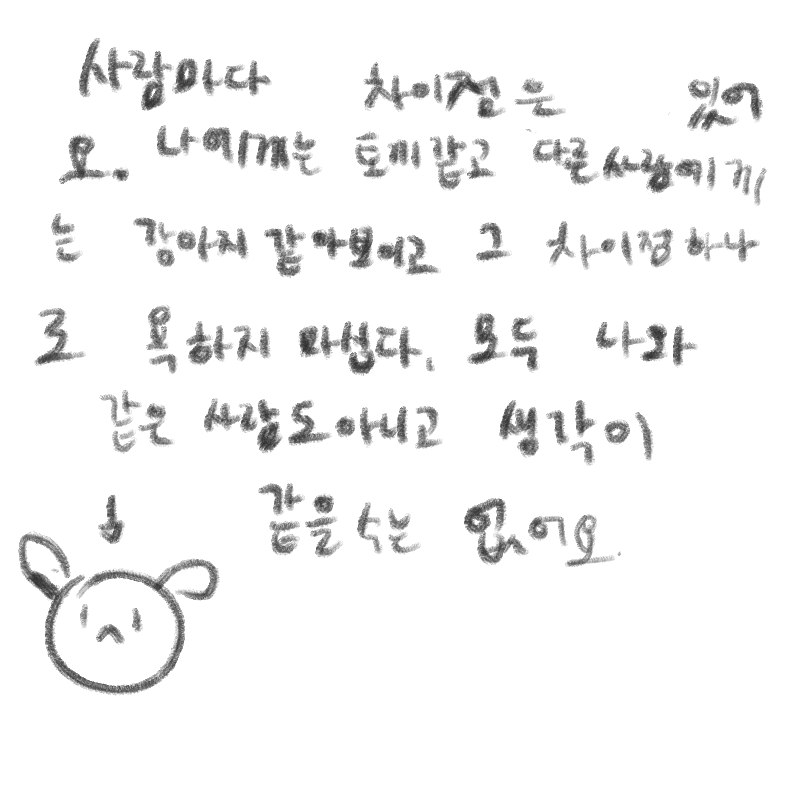 사람마다 차이점은 있어
요. 나에게는 토끼같고 다른사람에게
는 강아지 같아보이고 그 차이점하나
로 욕하지 마십다. 모두 나와
같은 사람도아니고 생각이
같을 수는 없어요.